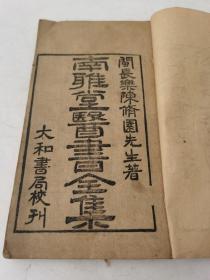 閩長樂陳脩園先生著
南雅堂醫書全集
太和書局校刊